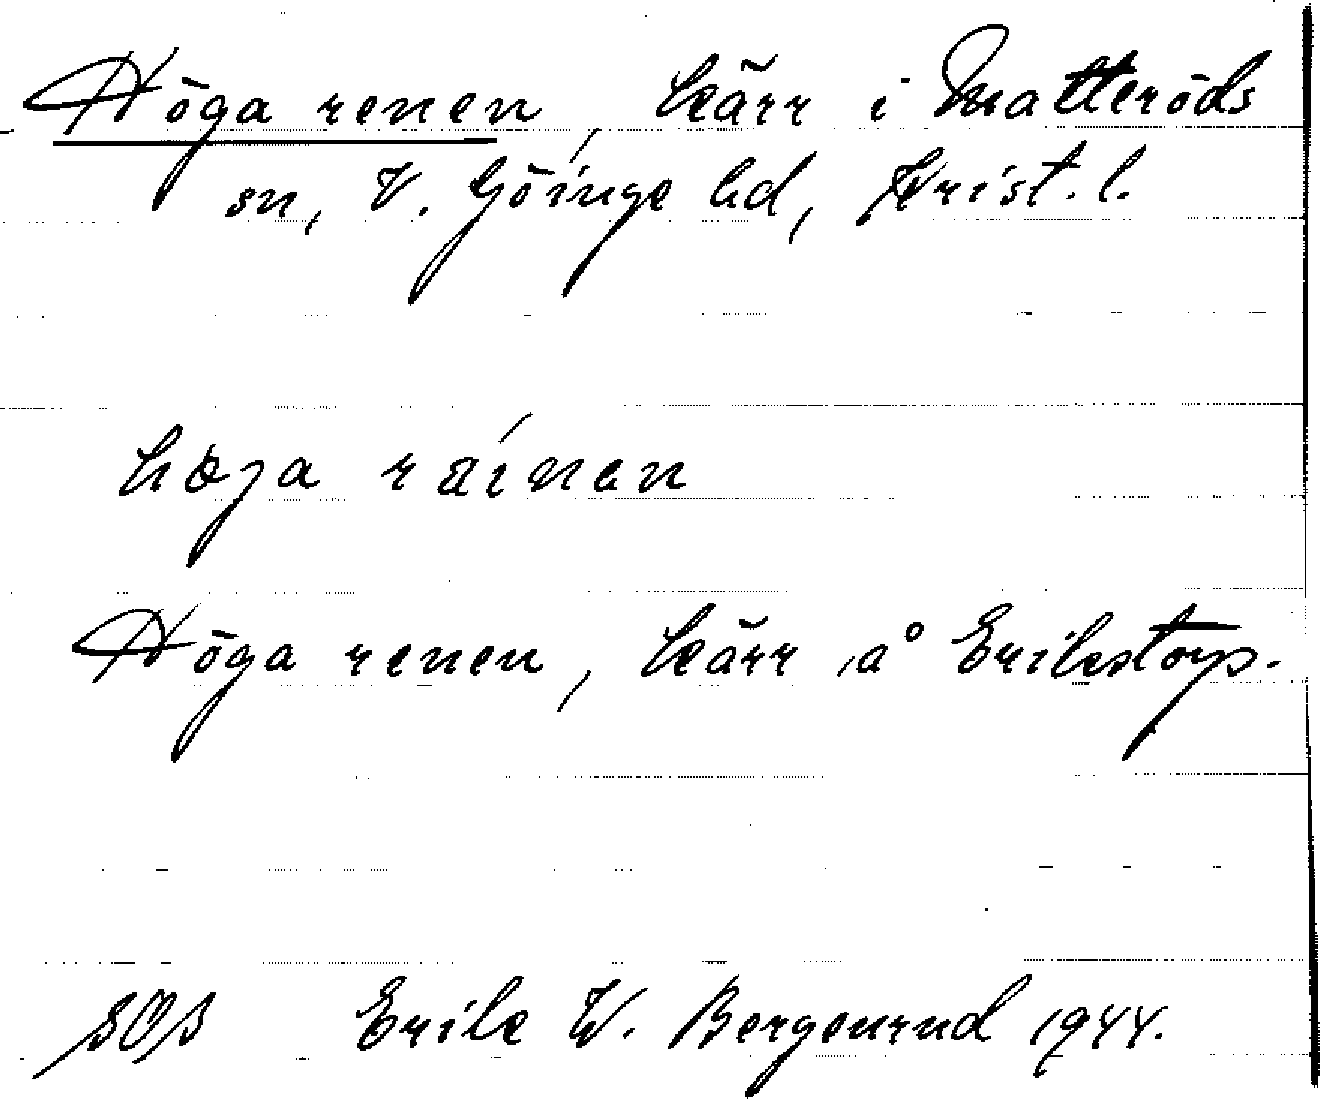 Höga renen, kärr i Matteröds
sn, V. Göinge hd, Krist. l.
høja ráinen
Höga renen, kärr å Erikstorp.
Erik W. Bergenrud 1944.